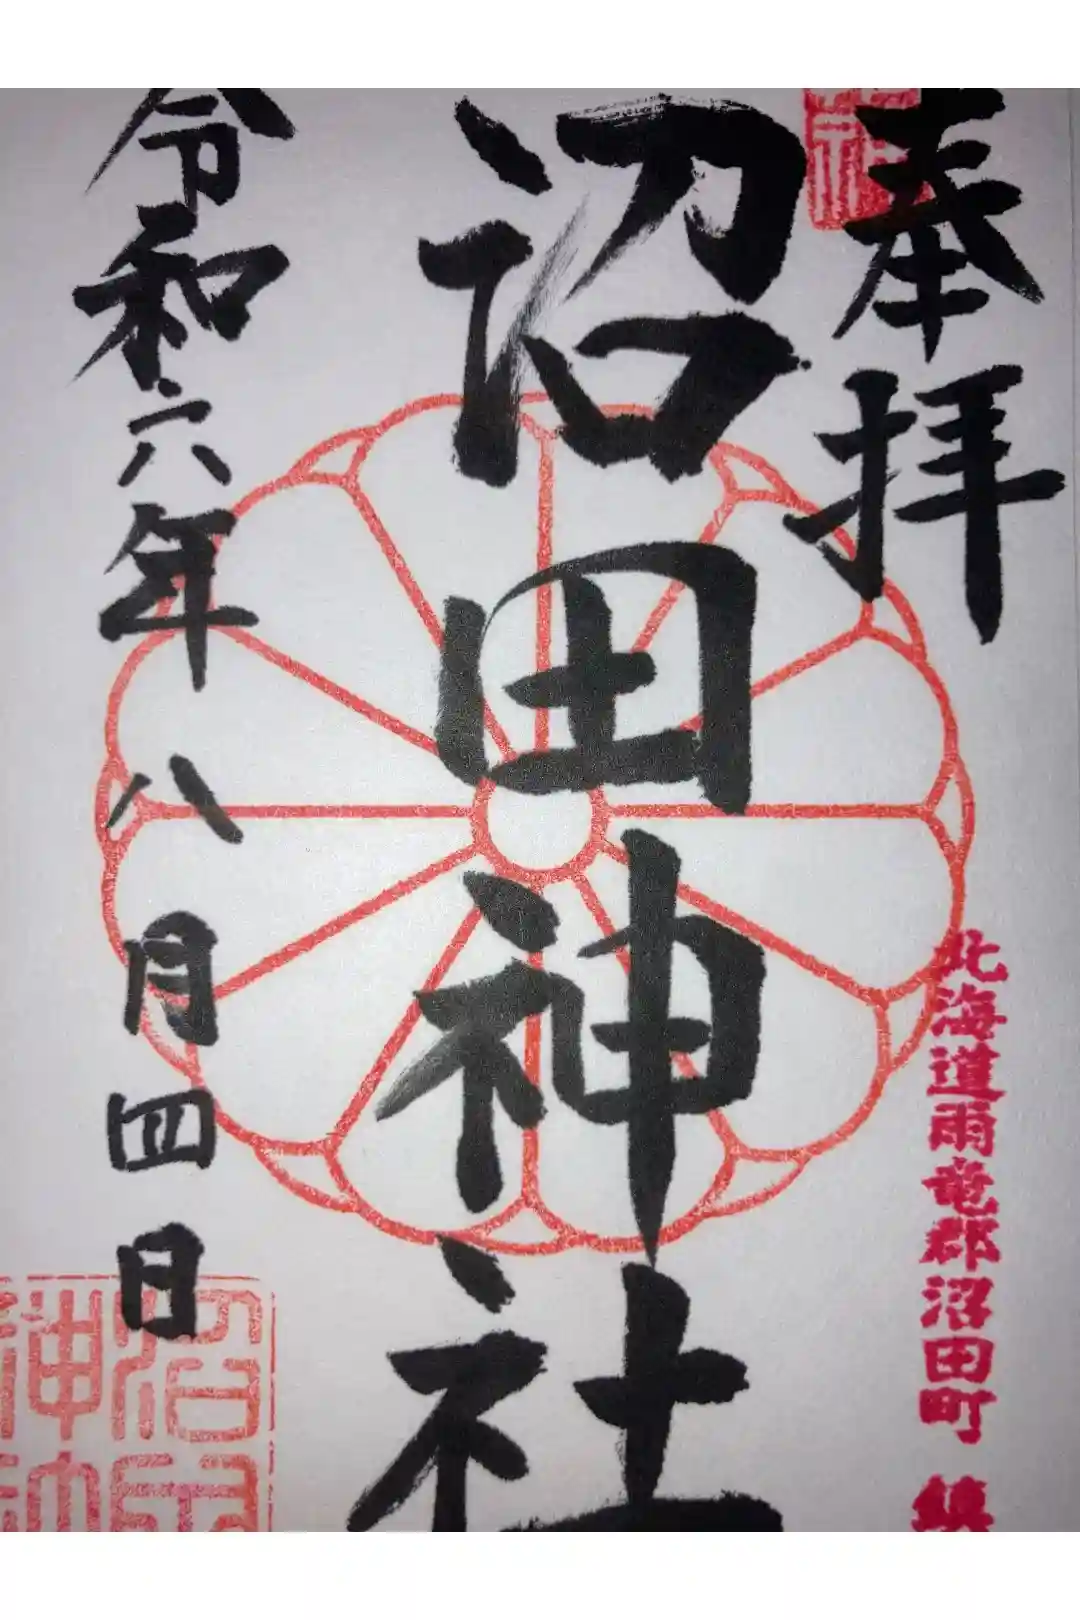 奉拝
北海道雨竜郡沼田町 鎮
沼田神社
令和六年八月四日